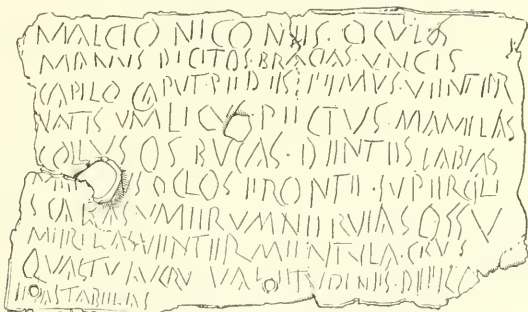 MALCIO NICONIIS · OCVLOS
MANVS DICITOS · BRACIAS · VNCIS
CAPILO CAPVT · PIIDIIS · FIIMVS · VIINTIIR
NATIS VMLICVS · PIICTVS · MAMILAS
COLVS OS BVCAS · DIINTIIS LABIAS
OCLOS FRONTII · SVPIIRCILI
VMIIRVM NIIRVIAS OSSV
MIIRILAS VIINTIIR MIINTVLA · CRVS
QVASTV LVCRV VALIITVDINIIS DIIFICO
IN AS TABIILAS